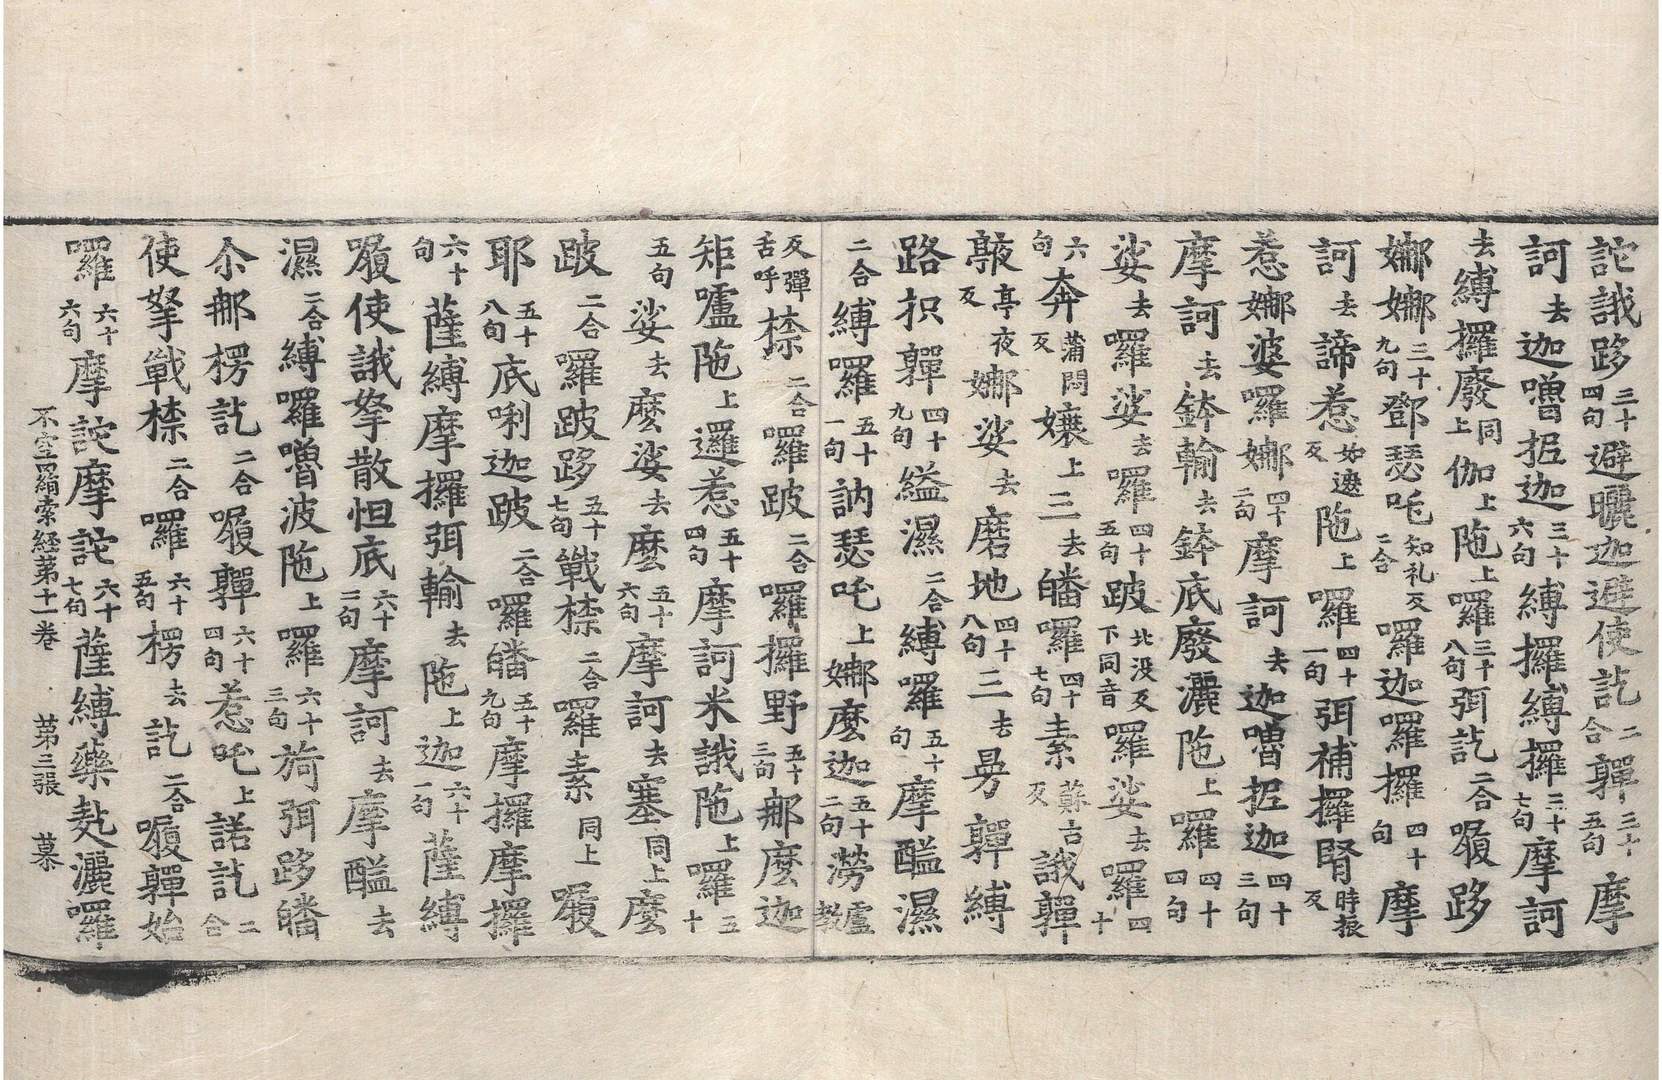 詑誐跢三十四句避曬迦避使訖二合亸三十五句摩
訶去迦嚕抳迦三十六句縛攞縛攞三十七句摩訶
去縛攞廢同上伽上陁上囉三十八句弭訖二合履跢
娜娜三十九句鄧瑟吒知礼反二合囉迦囉攞四十句摩
訶去諦惹如邀反陁上囉四十一句弭補攞腎時振反
惹娜婆囉娜四十二句摩訶去迦嚕抳迦四十三句
摩訶去鉢輸去鉢底廢灑陁上囉四十四句
娑去囉娑去囉四十五句跛北没反下同音囉娑去囉四十
六句奔蒲悶反孃上三去皤囉四十七句素蘇古反誐亸
㪍亭夜反娜娑去磨地四十八句三去曼亸縛
路抧亸四十九句縊濕二合縛囉五十句摩醯濕
二合縛囉五十一句訥瑟吒上娜麼迦五十二句澇盧教
反彈舌呼㯲二合囉跛二合囉攞野五十三句那麼迦
矩嚧陁上邏惹五十四句摩訶米誐陁上囉五十
五句娑去麼娑去麼五十六句摩訶去塞同上麼
跛二合囉跛跢五十七句戰㯲二合囉素同上履
耶五十八句底唎迦跛二合囉皤五十九句摩攞摩攞
六十句薩縛摩攞弭輸去陁上迦六十一句薩縛
履使誐拏散怛底六十二句摩訶去摩訶醯去
濕二合縛囉嚕波陁上囉六十三句旖弭跢皤
尒那楞訖二合履亸六十四句惹吒上諾訖二合
使拏戰㯲二合囉六十五句楞去訖二合履亸始
囉六十六句摩詑摩詑六十七句薩縛藥乽灑囉
不空羂索経苐十一卷 苐三張 慕